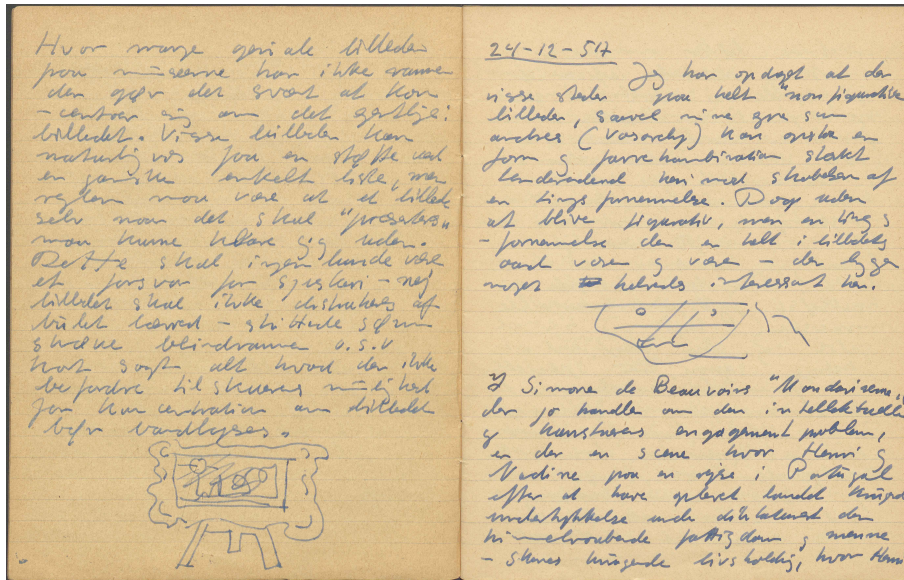 Hvor mange geniale billeder
paa museerne har ikke rammer
der gør det svært at kon
-centrere sig om det egentlige:
billedet. Visse billeder kan
naturligvis faa en støtte ved
en ganske enkelt liste, men
reglen maa være at et billede
selv naar det skal "præsenteres"
maa kunne klare sig uden.
Dette skal ingenlunde være
et forsvar for sjuskeri - nej
billedet skal ikke diskuteres af
bulet lærred - skittede søm
skæve blindrammer o.s.v
kort sagt alt hvad der ikke
befordre tilskuerens mulighed
for koncentration om billedet
bør bandlyses.
24-12-57
Jeg har opdaget at der
visse steder paa helt "nonfigurative
billeder, saavel mine egne som
andres (Vasarely) kan opstaa en
form og farvekombination stærkt
henimod skabelsen af
en tings fornemmelse. Dog uden
at blive figurativ, men en tings
-fornemmelse der er helt i billedets
aand væsen og være - der ligger
noget helvedes interessant her.
I Simone de Beauvoirs "Mandarinerne"
der jo handler om den intellektuelle
og kunstneres engagement problem,
er der en scene hvor Henri og
Nadine paa en rejse i Portugal
efter at have oplevet landets kuende
undertrykkelse under diktaturet den
himmelraabende fattigdom og menne
-skenes kuende livsholdig, hvor Henri